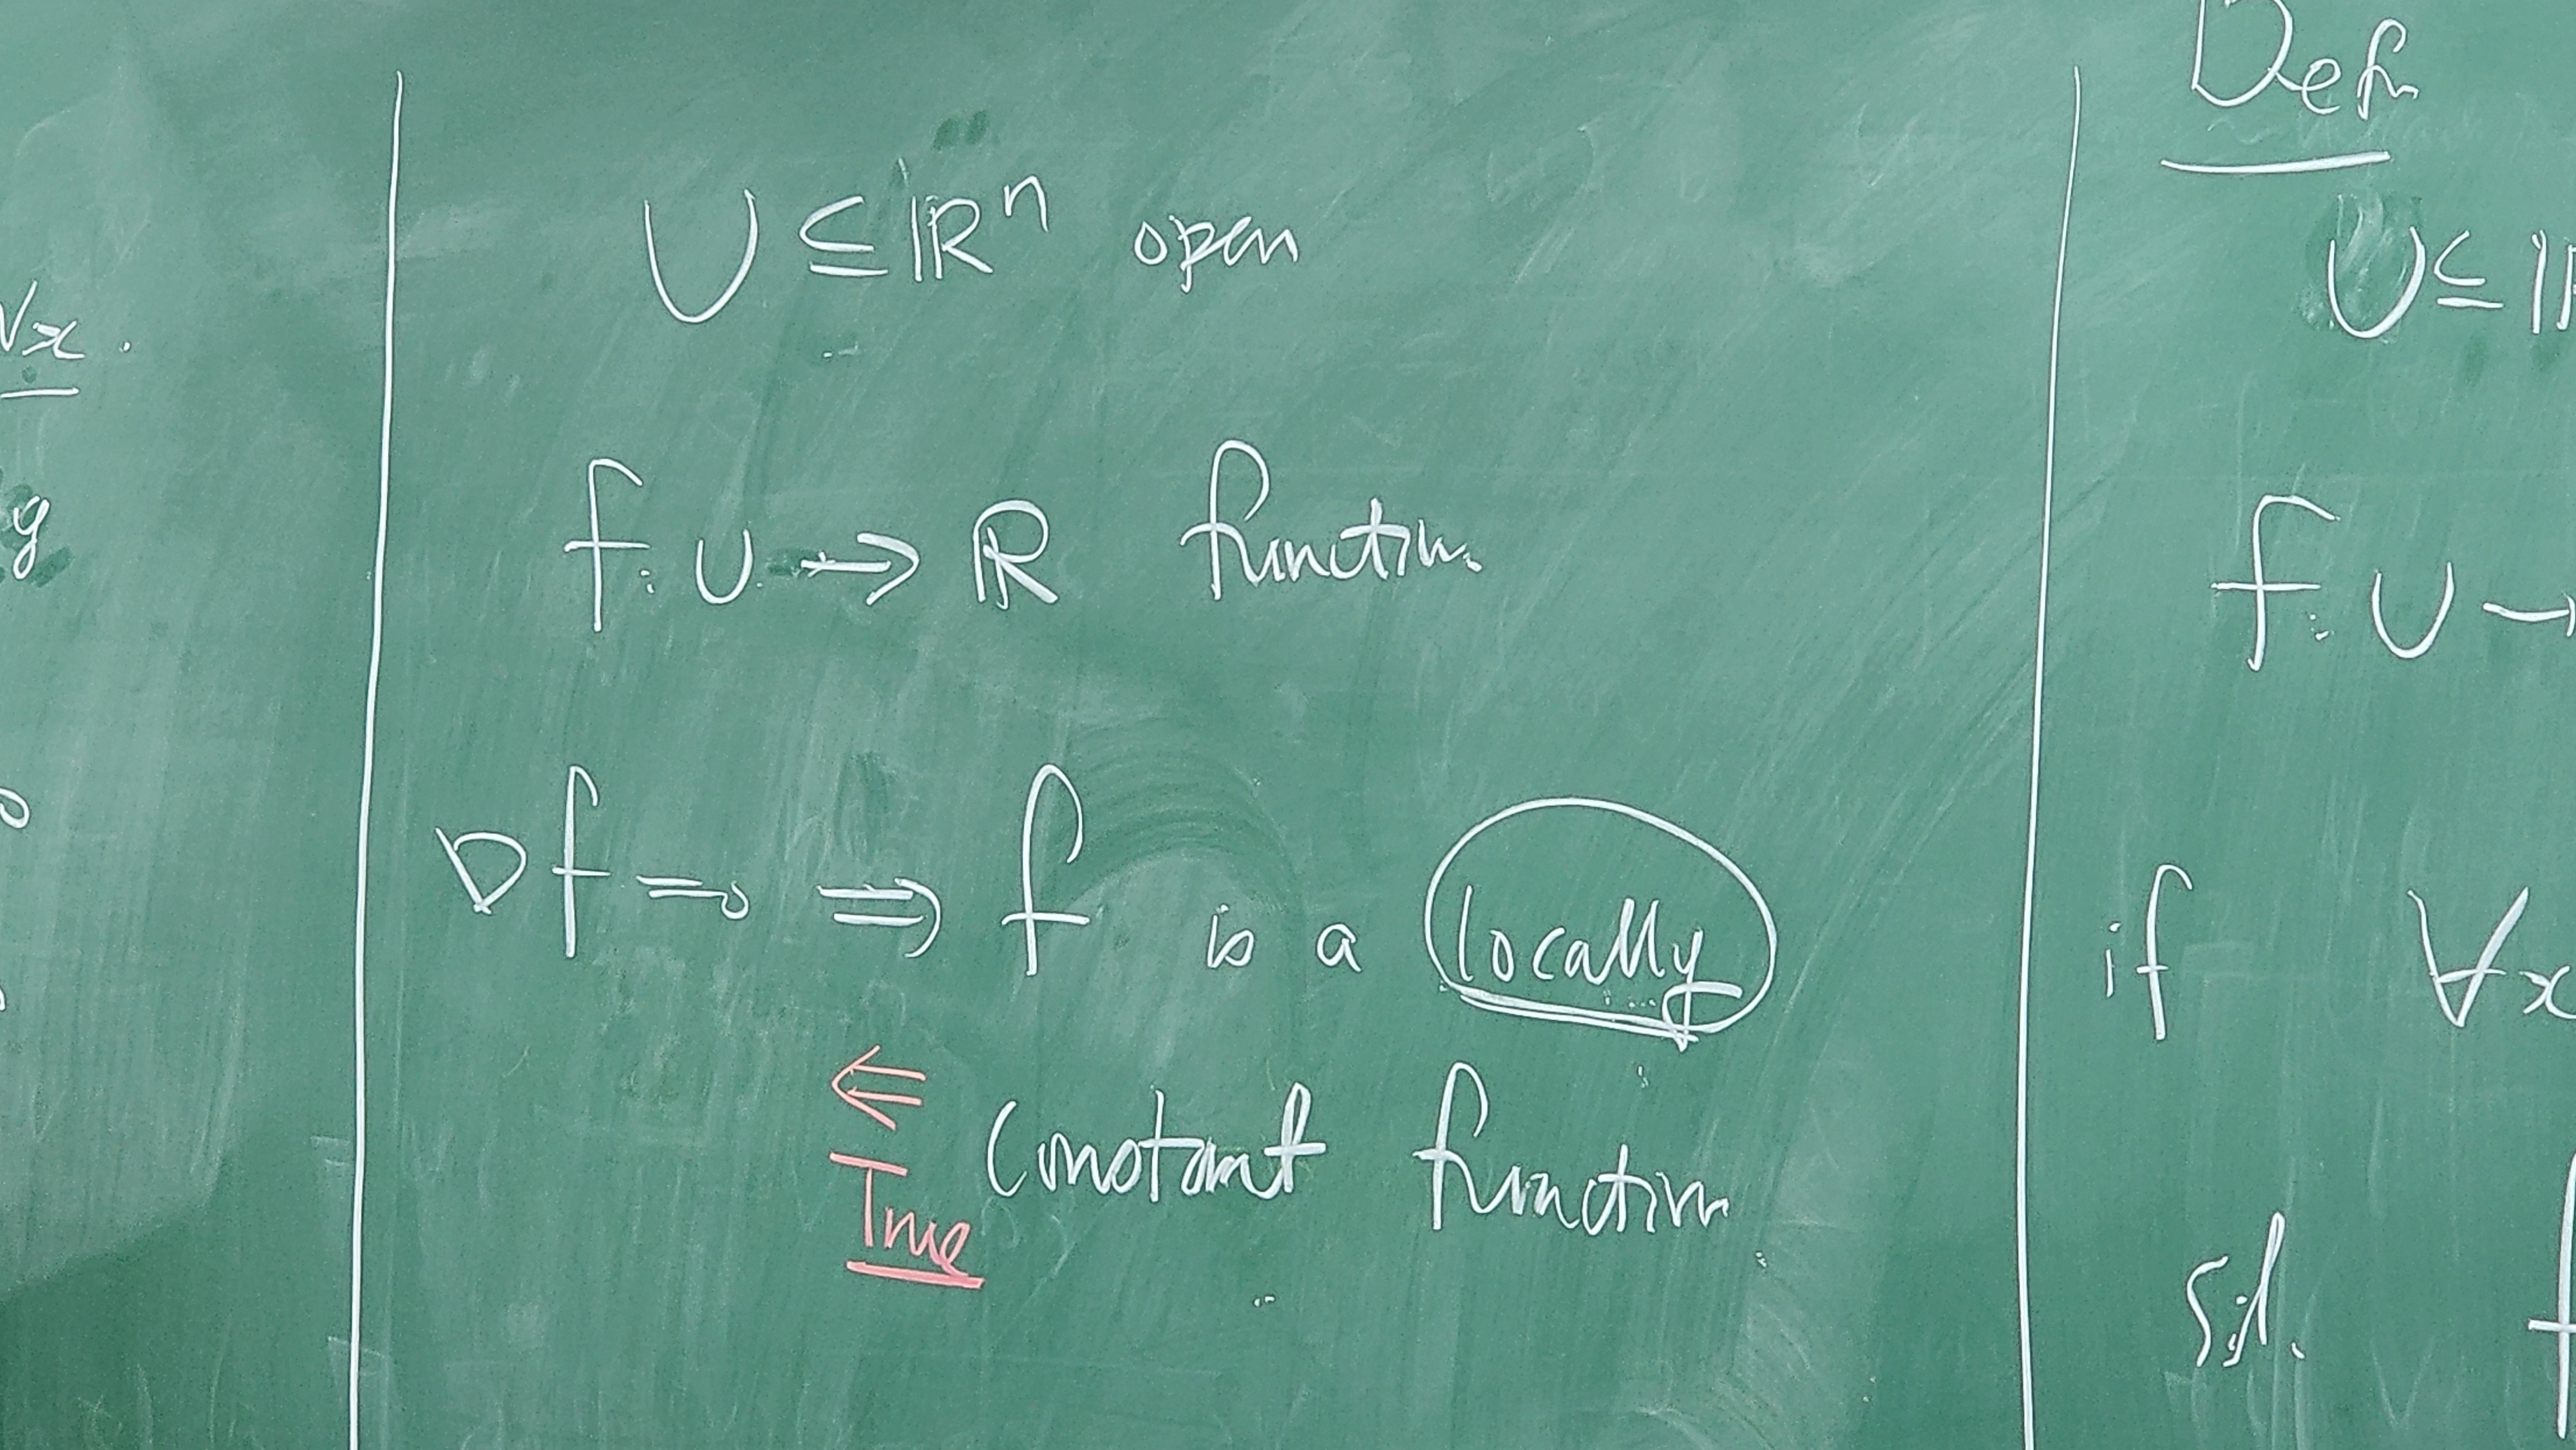 ∀x.
y
U ⊆ ℝⁿ open
f: U → ℝ function
Df = 0 ⇒ f is a locally
⇐ constant function
True
Defn
U ⊆ ℝ
f: U →
if ∀x
s.t. f